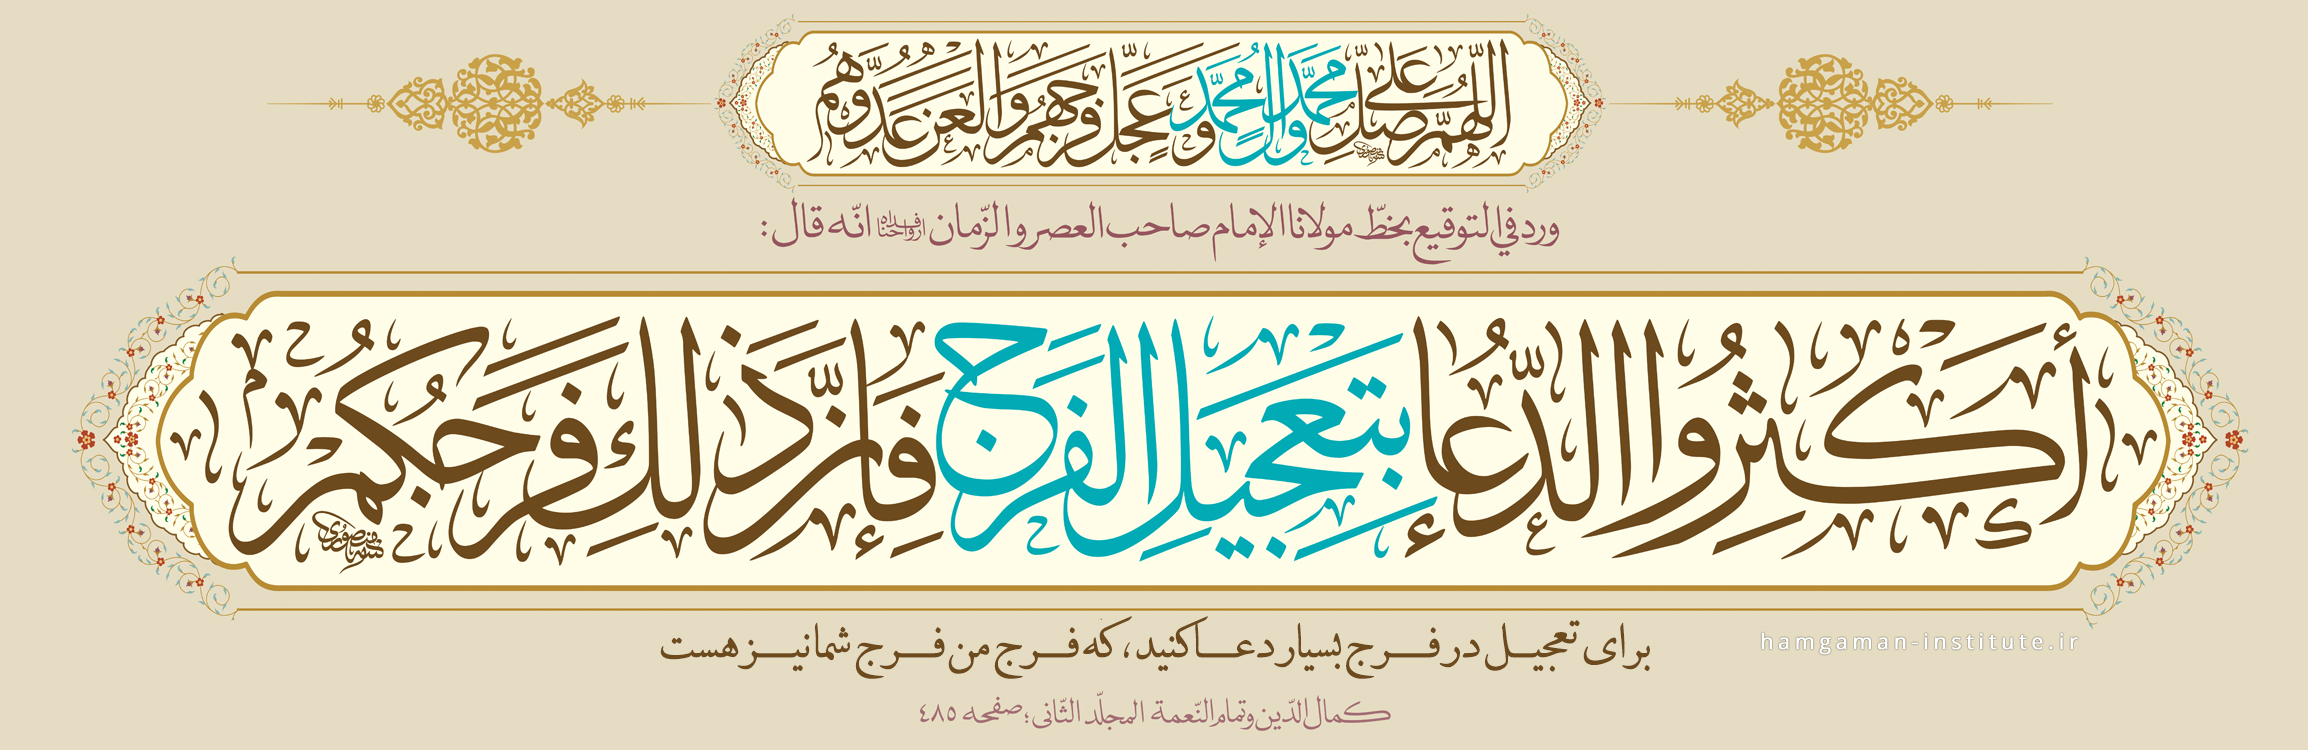 اللّهُمَّ صَلِّ عَلى مُحَمَّد وَ الِ مُحَمَّد وَ عَجِّل فَرَجَهُم وَ العَن عَدُوَّهُم
ورد في التوقيع بخطّ مولانا الإمام صاحب العصر و الزّمان ارواحنا فداه انّه قال:
أَكثِرُوا الدُّعاءَ بِتَعجيلِ الفَرَج فَإِنَّ ذلِكَ فَرَجُكُم
برای تعجیل در فرج بسیار دعا کنید، که فرج من فرج شما نیز هست
hamgaman-institute.ir
كمال الدّين و تمام النّعمة المجلّد الثّانی؛ صفحه ٤٨٥